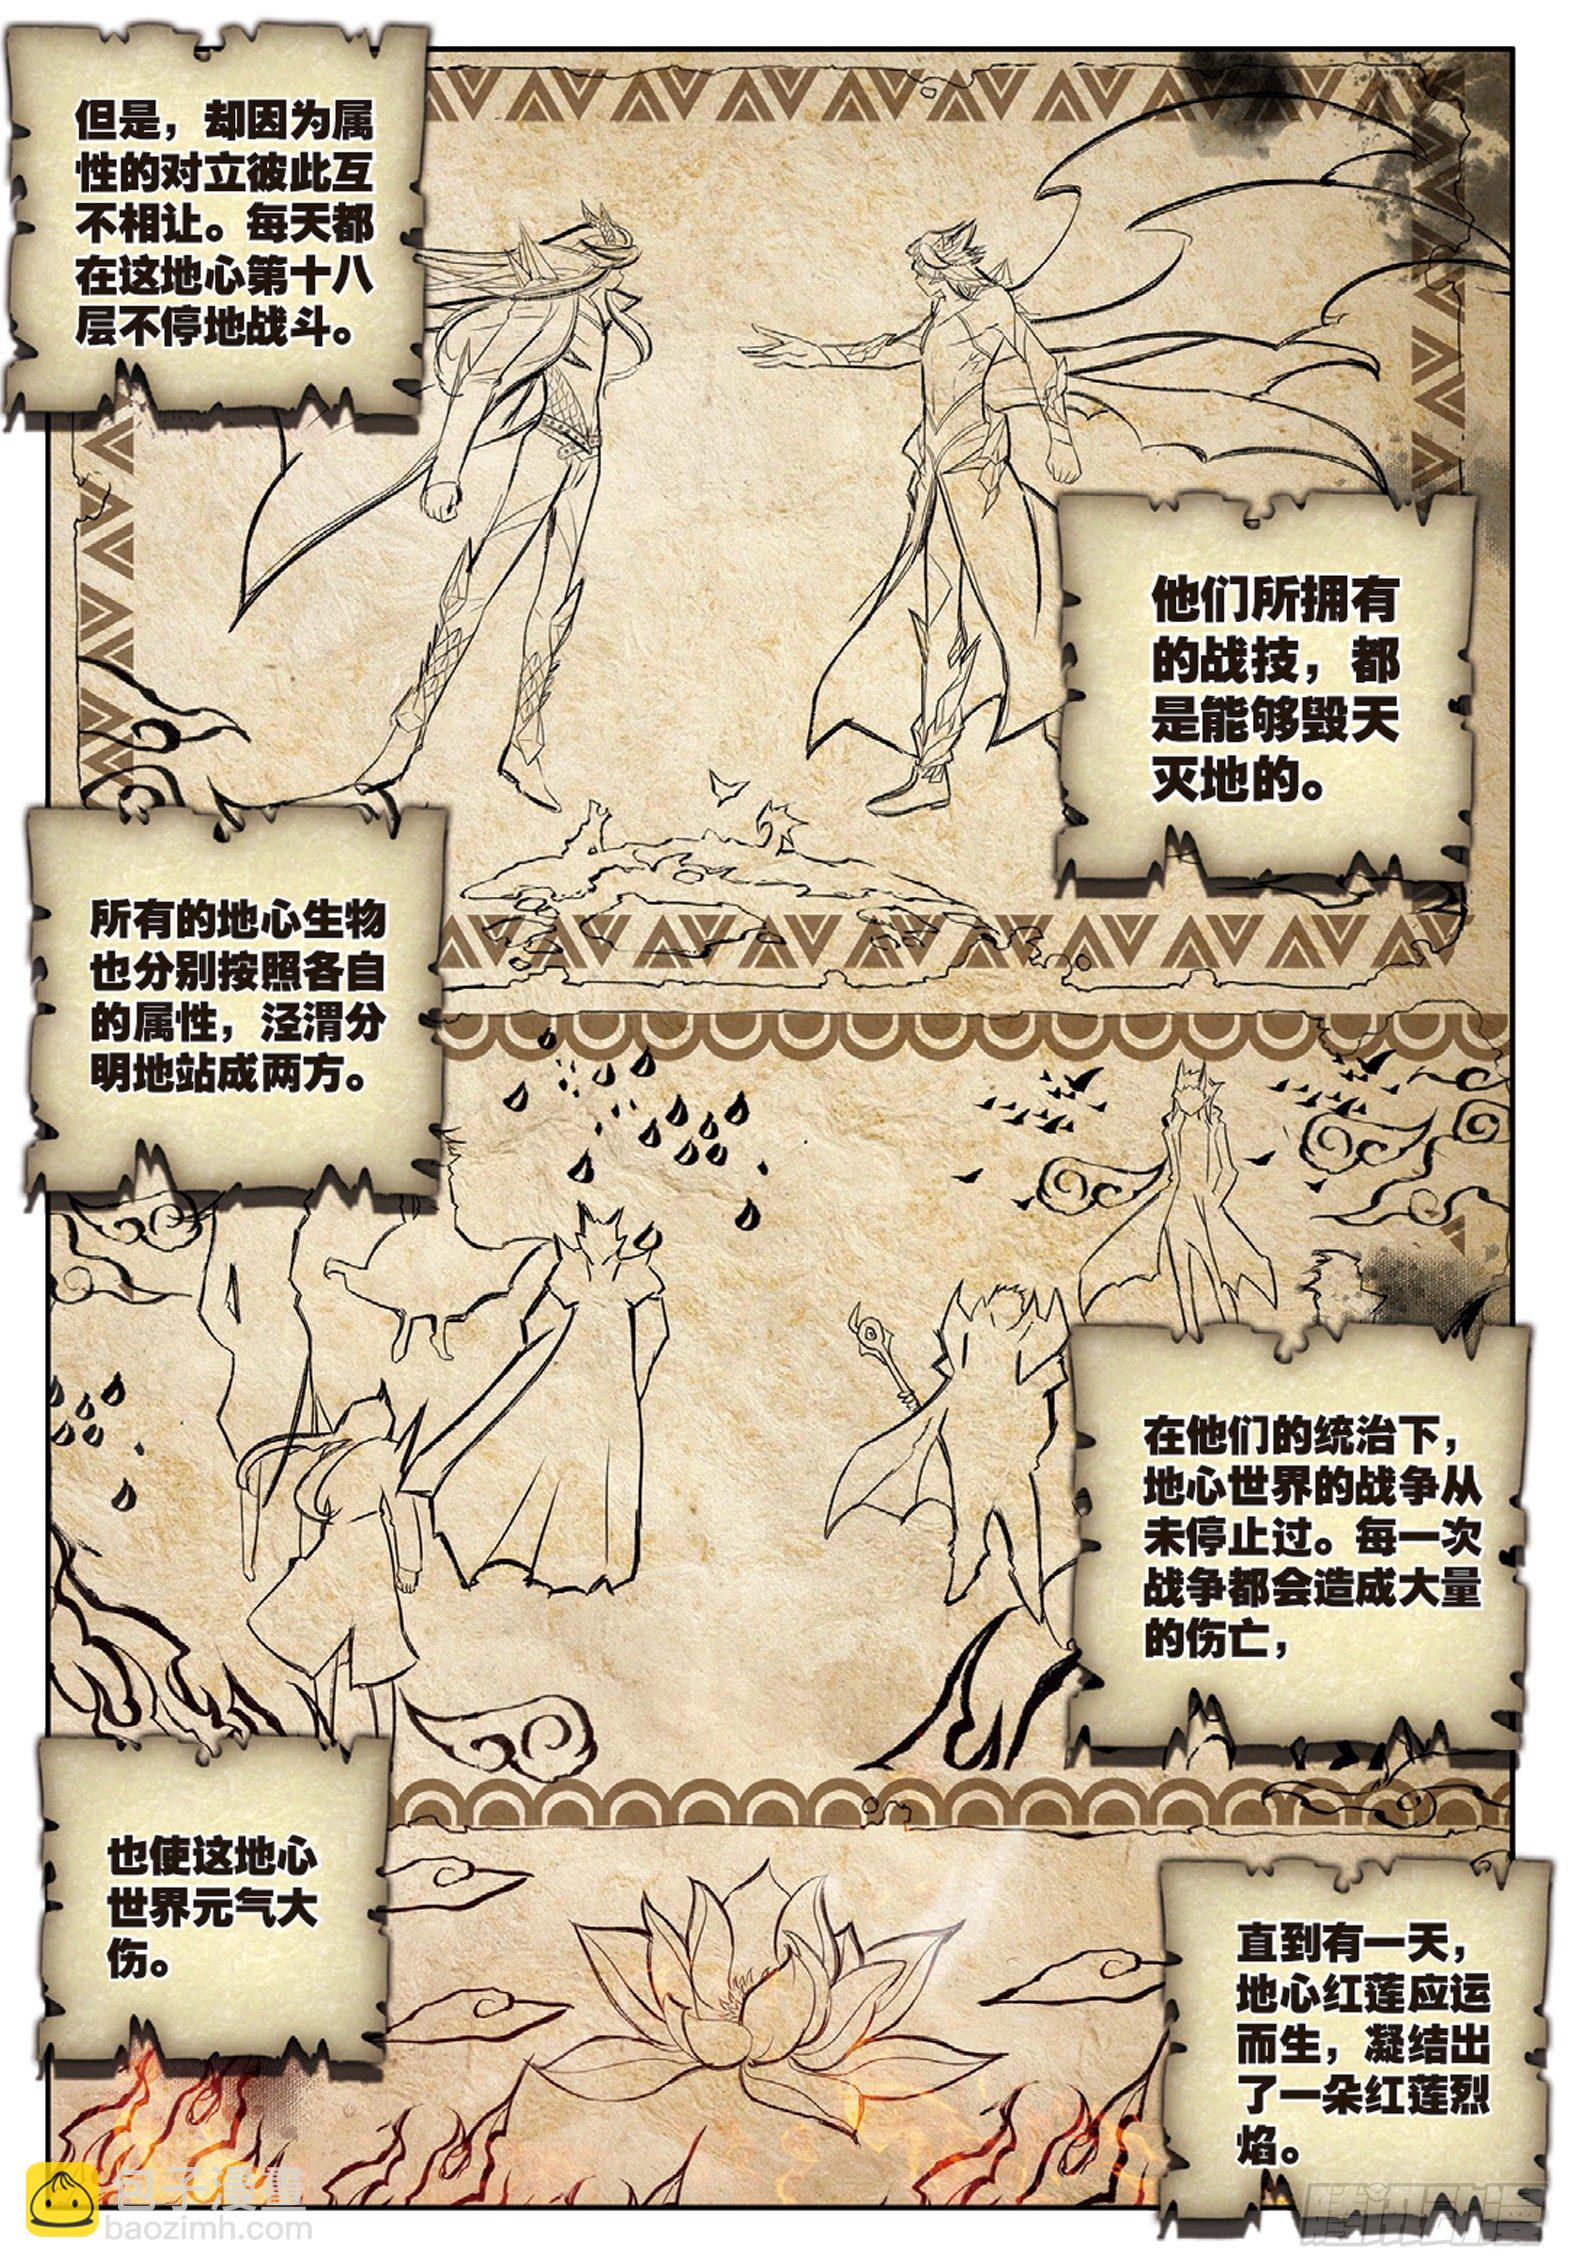 但是，却因为属
性的对立彼此互
不相让。每天都
在这地心第十八
层不停地战斗。
他们所拥有
的战技，都
是能够毁天
灭地的。
所有的地心生物
也分别按照各自
的属性，泾渭分
明地站成两方。
在他们的统治下，
地心世界的战争从
未停止过。每一次
战争都会造成大量
的伤亡，
也使这地心
世界元气大
伤。
直到有一天，
地心红莲应运
而生，凝结出
了一朵红莲烈
焰。
包子漫畫
baozimh.com
腾讯动漫